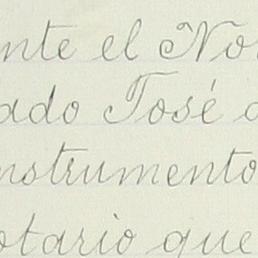 nte el No
ado José
nstrumento
otario que